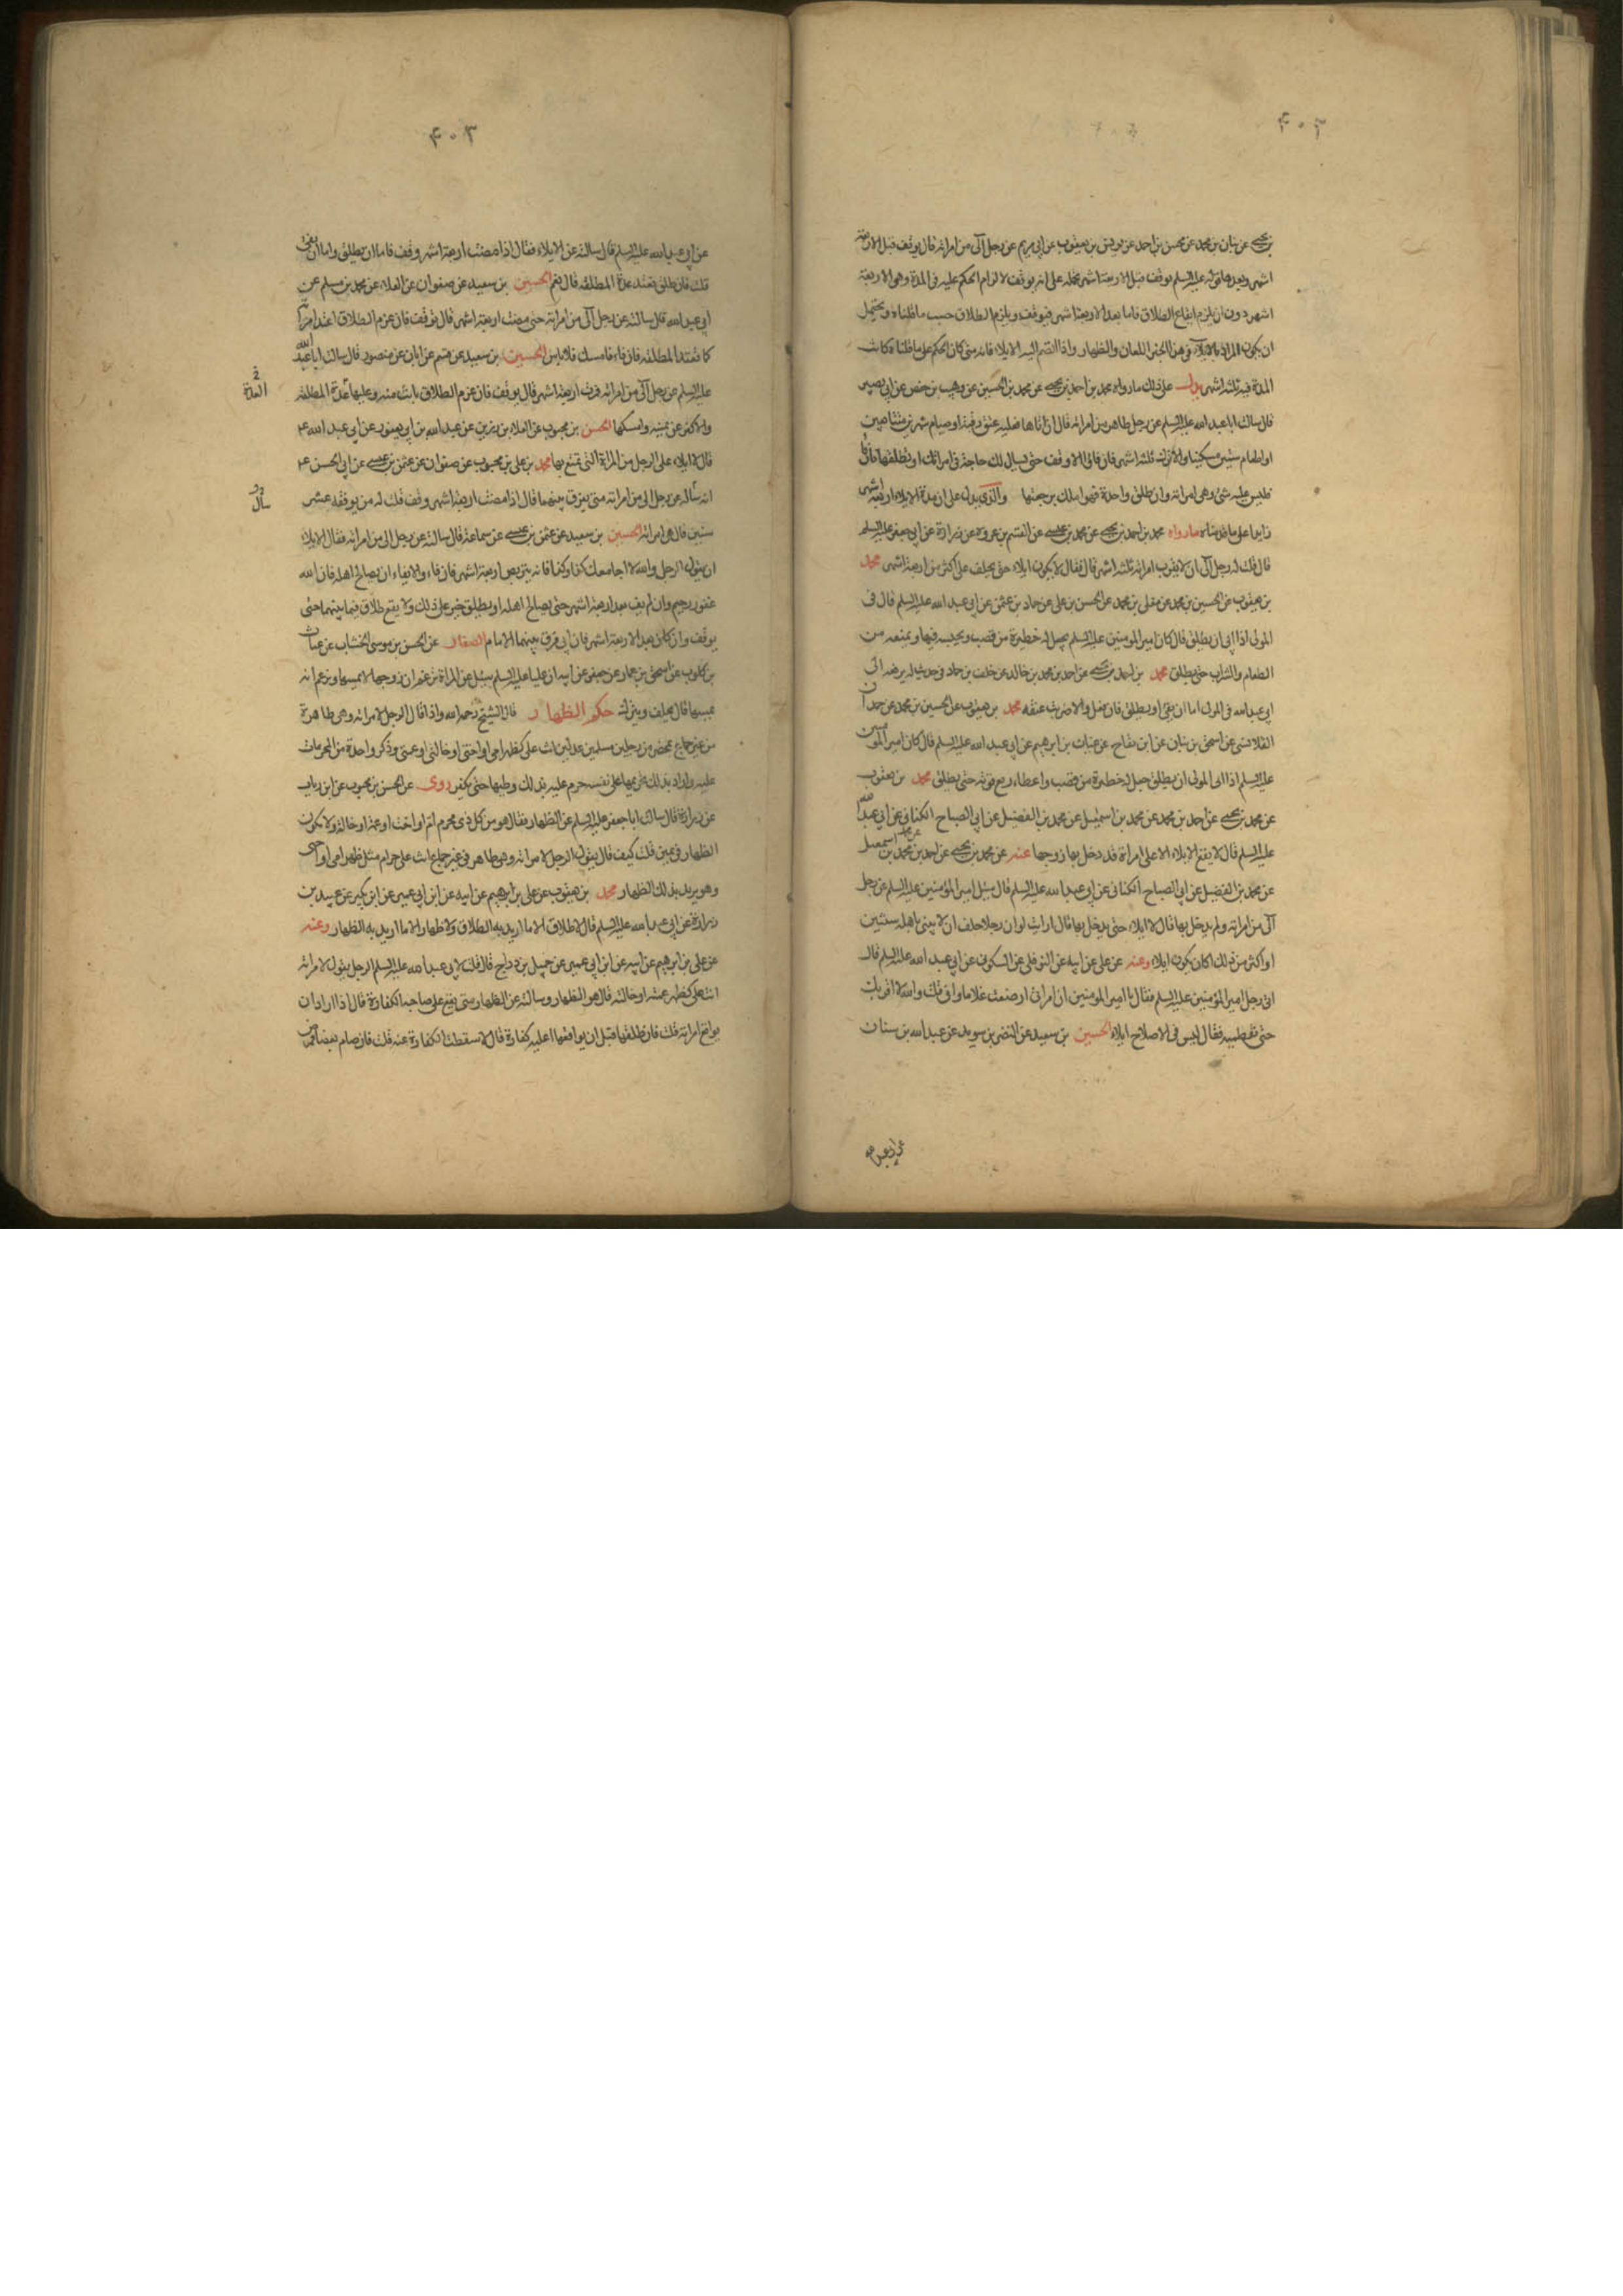 ۴۰۲
بن يحيى عن بنان بن محمد عن محسن بن احمد عن يونس بن يعقوب عن ابى مريم عن رجل آلى من امراته قال يوقف قبل الاربعة
اشهر وبعدها قوله عليه السلم يوقف قبل الاربعة اشهر نحمله على انه يوقف لالزام الحكم عليه فى المدة وهى الاربعة
اشهر دون ان يلزم ايقاع الطلاق فاما بعد الاربعة اشهر فيوقف ويلزم الطلاق حسب ما قلناه ويحتمل
ان يكون المراد بالايلاء فى هذا الخبر اللعان والظهار واذا انضم اليه الايلاء فانه متى كان الحكم على ما قلناه كانت
المدة فيه ثلثة اشهر يدل على ذلك ما رواه محمد بن احمد بن يحيى عن محمد بن الحسين عن وهيب بن حفص عن ابى بصير
قال سالت ابا عبد الله عليه السلم عن رجل ظاهر من امراته قال ان اتاها فعليه عتق رقبة او صيام شهرين متتابعين
او اطعام ستين مسكينا والا ترك ثلثة اشهر فان فاء والا وقف حتى يسال لك حاجة فى امراتك او تطلقها فان فاء
فليس عليه شئ وهى امراته وان طلق واحدة فهو املك برجعتها والذى يدل على ان مدة الايلاء اربعة اشهر
زايدا على ما قدمناه ما رواه محمد بن احمد بن يحيى عن محمد بن عيسى عن القسم بن عروة عن زرارة عن ابى جعفر عليه السلم
قال قلت له رجل آلى ان لا يقرب امراته ثلثة اشهر قال فقال لا يكون ايلاء حتى يحلف على اكثر من اربعة اشهر محمد
بن يعقوب عن الحسين بن محمد عن معلى بن محمد عن الحسن بن على عن حماد بن عثمن عن ابى عبد الله عليه السلم قال فى
المولى اذا ابى ان يطلق قال كان امير المومنين عليه السلم يجعل له حظيرة من قصب ويحبسه فيها ويمنعه من
الطعام والشراب حتى يطلق محمد بن احمد بن يحيى عن احمد بن محمد بن خالد عن خلف بن حماد فى حديث له يرفعه الى
ابى عبد الله فى المولى اما ان يفئ او يطلق فان فعل والا ضربت عنقه محمد بن يعقوب عن الحسين بن محمد عن حمدان
القلانسى عن اسحق بن بنان عن ابن بقاح عن غياث بن ابرهيم عن ابى عبد الله عليه السلم قال كان امير المؤمنين
عليه السلم اذا ابى المولى ان يطلق جعل له حظيرة من قصب واعطاه ربع قوته حتى يطلق محمد بن يعقوب
عن محمد بن يحيى عن احمد بن محمد عن محمد بن اسمعيل عن محمد بن الفضيل عن ابى الصباح الكنانى عن ابى عبد الله
عليه السلم قال لا يقع الايلاء الا على امراة قد دخل بها زوجها عنه عن محمد بن يحيى عن احمد بن محمد عن محمد بن اسمعيل
عن محمد بن الفضيل عن ابى الصباح الكنانى عن ابى عبد الله عليه السلم قال سئل امير المؤمنين عليه السلم عن رجل
آلى من امراته ولم يدخل بها قال لا ايلاء حتى يدخل بها قال ارايت لو ان رجلا حلف ان لا يبنى باهله سنتين
او اكثر من ذلك اكان يكون ايلاء وعنه عن على عن ابيه عن النوفلى عن السكونى عن ابى عبد الله عليه السلم قال
اتى رجل امير المؤمنين عليه السلم فقال يا امير المومنين ان امراتى ارضعت غلاما وانى قلت والله لا اقربك
حتى تفطميه فقال ليس فى الاصلاح ايلاء الحسين بن سعيد عن النضر بن سويد عن عبد الله بن سنان
عن ابى عبد الله
۴۰۳
عن ابى عبد الله عليه السلم قال سالته عن الايلاء فقال اذا مضت اربعة اشهر وقف فاما ان يطلق واما ان يفئ
قلت فان طلق تعتد عدة المطلقه قال نعم الحسين بن سعيد عن صفوان عن العلاء عن محمد بن مسلم عن
ابى عبد الله قال سالته عن رجل آلى من امراته حتى مضت اربعة اشهر قال يوقف فان عزم الطلاق اعتدت امراته
كما تعتد المطلقه فان فاء فامسك فلا باس الحسين بن سعيد عن قسم عن ابان عن منصور قال سالت ابا عبد الله
عليه السلم عن رجل آلى من امراته فمرت اربعة اشهر قال يوقف فان عزم الطلاق بانت منه وعليها عدة المطلقه
والا كفر عن يمينه وامسكها الحسن بن محبوب عن العلاء بن رزين عن عبد الله بن ابى يعفور عن ابى عبد الله ع
قال لا ايلاء على الرجل من المراة التى تمتع بها محمد بن على بن محبوب عن صفوان عن عثمن بن عيسى عن ابى الحسن ع
انه سأله عن رجل الى من امراته متى يفرق بينهما قال اذا مضت اربعة اشهر وقف قلت له من يوقفه عشر
سنين قال هى امراته الحسين بن سعيد عن عثمن بن عيسى عن سماعة قال سالته عن رجل الى من امراته فقال الايلاء
ان يقول الرجل والله لا اجامعك كذا وكذا فانه يتربص اربعة اشهر فان فاء والايفاء ان يصالح اهله فان الله
غفور رحيم وان لم يف بعد اربعة اشهر حتى يصالح اهله او يطلق جبر على ذلك ولا يقع طلاق فيما بينهما حتى
يوقف وان كان بعد الاربعة اشهر فان ابى فرق بينهما الامام الصفار عن الحسن بن موسى الخشاب عن غياث
بن كلوب عن اسحق بن عمار عن جعفر عن ابيه ان عليا عليه السلم سئل عن المراة تزعم ان زوجها لا يمسها ويزعم انه
يمسها قال يحلف ويترك حكم الظهار قال الشيخ رحمه الله واذا قال الرجل لامراته وهى طاهرة
من غير جماع بمحضر من رجلين مسلمين عدلين انت على كظهر امى او اختى او خالتى او عمتى وذكر واحدة من المحرمات
عليه واراد بذلك تحريمها على نفسه حرم عليه بذلك وطيها حتى يكفر روى عن الحسن بن محبوب عن ابن رياب
عن زرارة قال سالت ابا جعفر عليه السلم عن الظهار فقال هو من كل ذى محرم ام او اخت او عمة او خالة ولا يكون
الظهار فى يمين قلت كيف قال يقول الرجل لامراته وهى طاهر فى غير جماع انت على حرام مثل ظهر امى او اختى
وهو يريد بذلك الظهار محمد بن يعقوب عن على بن ابرهيم عن ابيه عن ابن ابى عمير عن ابن بكير عن عبيد بن
زرارة عن ابى عبد الله عليه السلم قال لا طلاق الا ما اريد به الطلاق ولا ظهار الا ما اريد به الظهار وعنه
عن على بن ابرهيم عن ابيه عن ابن ابى عمير عن جميل بن دراج قال قلت لابى عبد الله عليه السلم الرجل يقول لامراته
انت على كظهر عمته او خالته قال هو الظهار وسالته عن الظهار متى يقع على صاحبه الكفارة قال اذا اراد ان
يواقع امراته قلت فان طلقها قبل ان يواقعها اعليه كفارة قال لا سقطت الكفارة عنه قلت فان صام بعضا فمرض
العدة
سأل